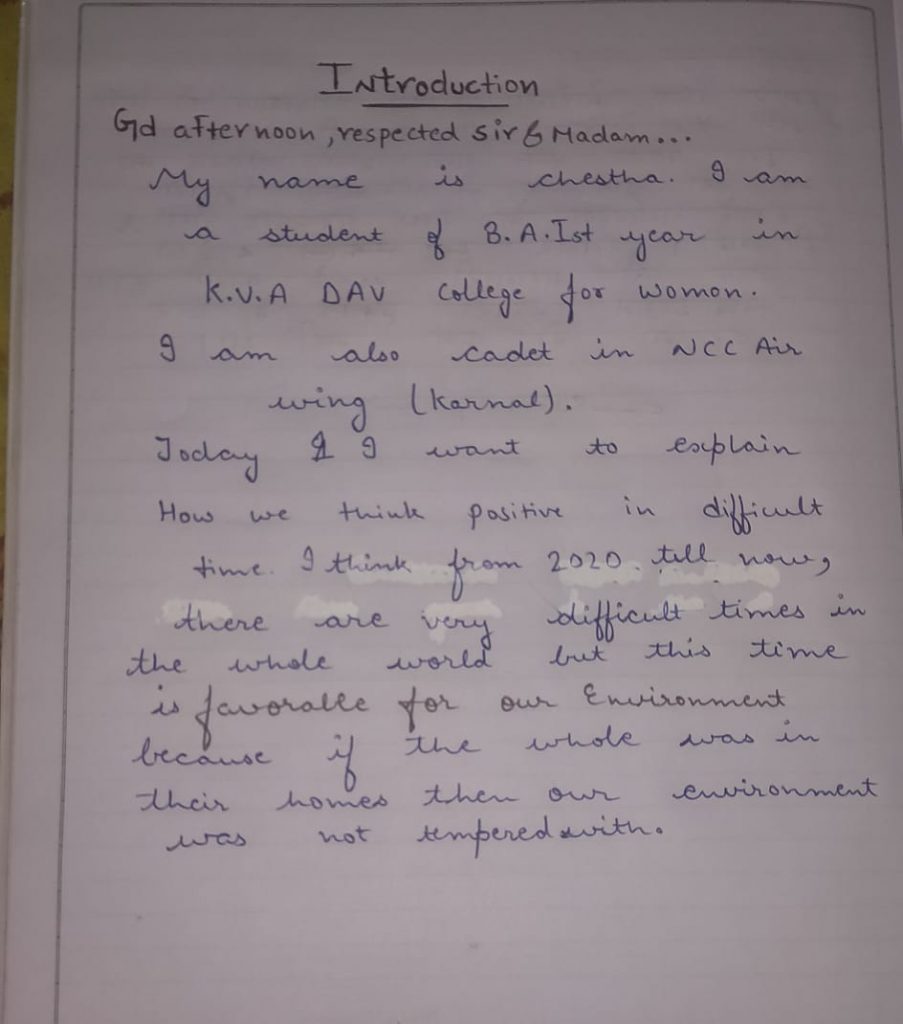 Introduction
Gd afternoon, respected Sir & Madam...
My name is chestha. I am
a student of B.A. Ist year in
K.V.A DAV College for Womon.
I am also cadet in NCC Air
wing (Karnal).
Today I want to explain
How we think positive in difficult
time. I think from 2020. till now,
there are very difficult times in
the whole world but this time
is favoralle for our Environment
because if the whole was in
their homes then our environment
was not tempered with.